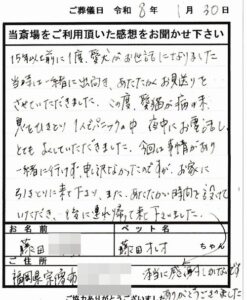 ご葬儀日 令和 8年 1月 30日
当斎場をご利用頂いた感想をお聞かせ下さい
15年以上前に1度、愛犬がお世話になりました
当時は一緒に出向き、あたたかくお見送りを
させていただきました。この度、愛猫が病の末、
息をひきとり1人もパニックの中 夜中にお電話し
とてもよくしていただきました。今回は事情があり
一緒に行けず、申し訳なかったですが、お家に
引きとりに来て下さり、また、あたたかい時間を設けて
いただき、すぐに連れ帰って来て下さいました。
お名前 ペット名
藤田 藤田オレオ ちゃん
福岡県宗像市 本当に感謝しかないです
ありがとうございました
ご協力ありがとうございました